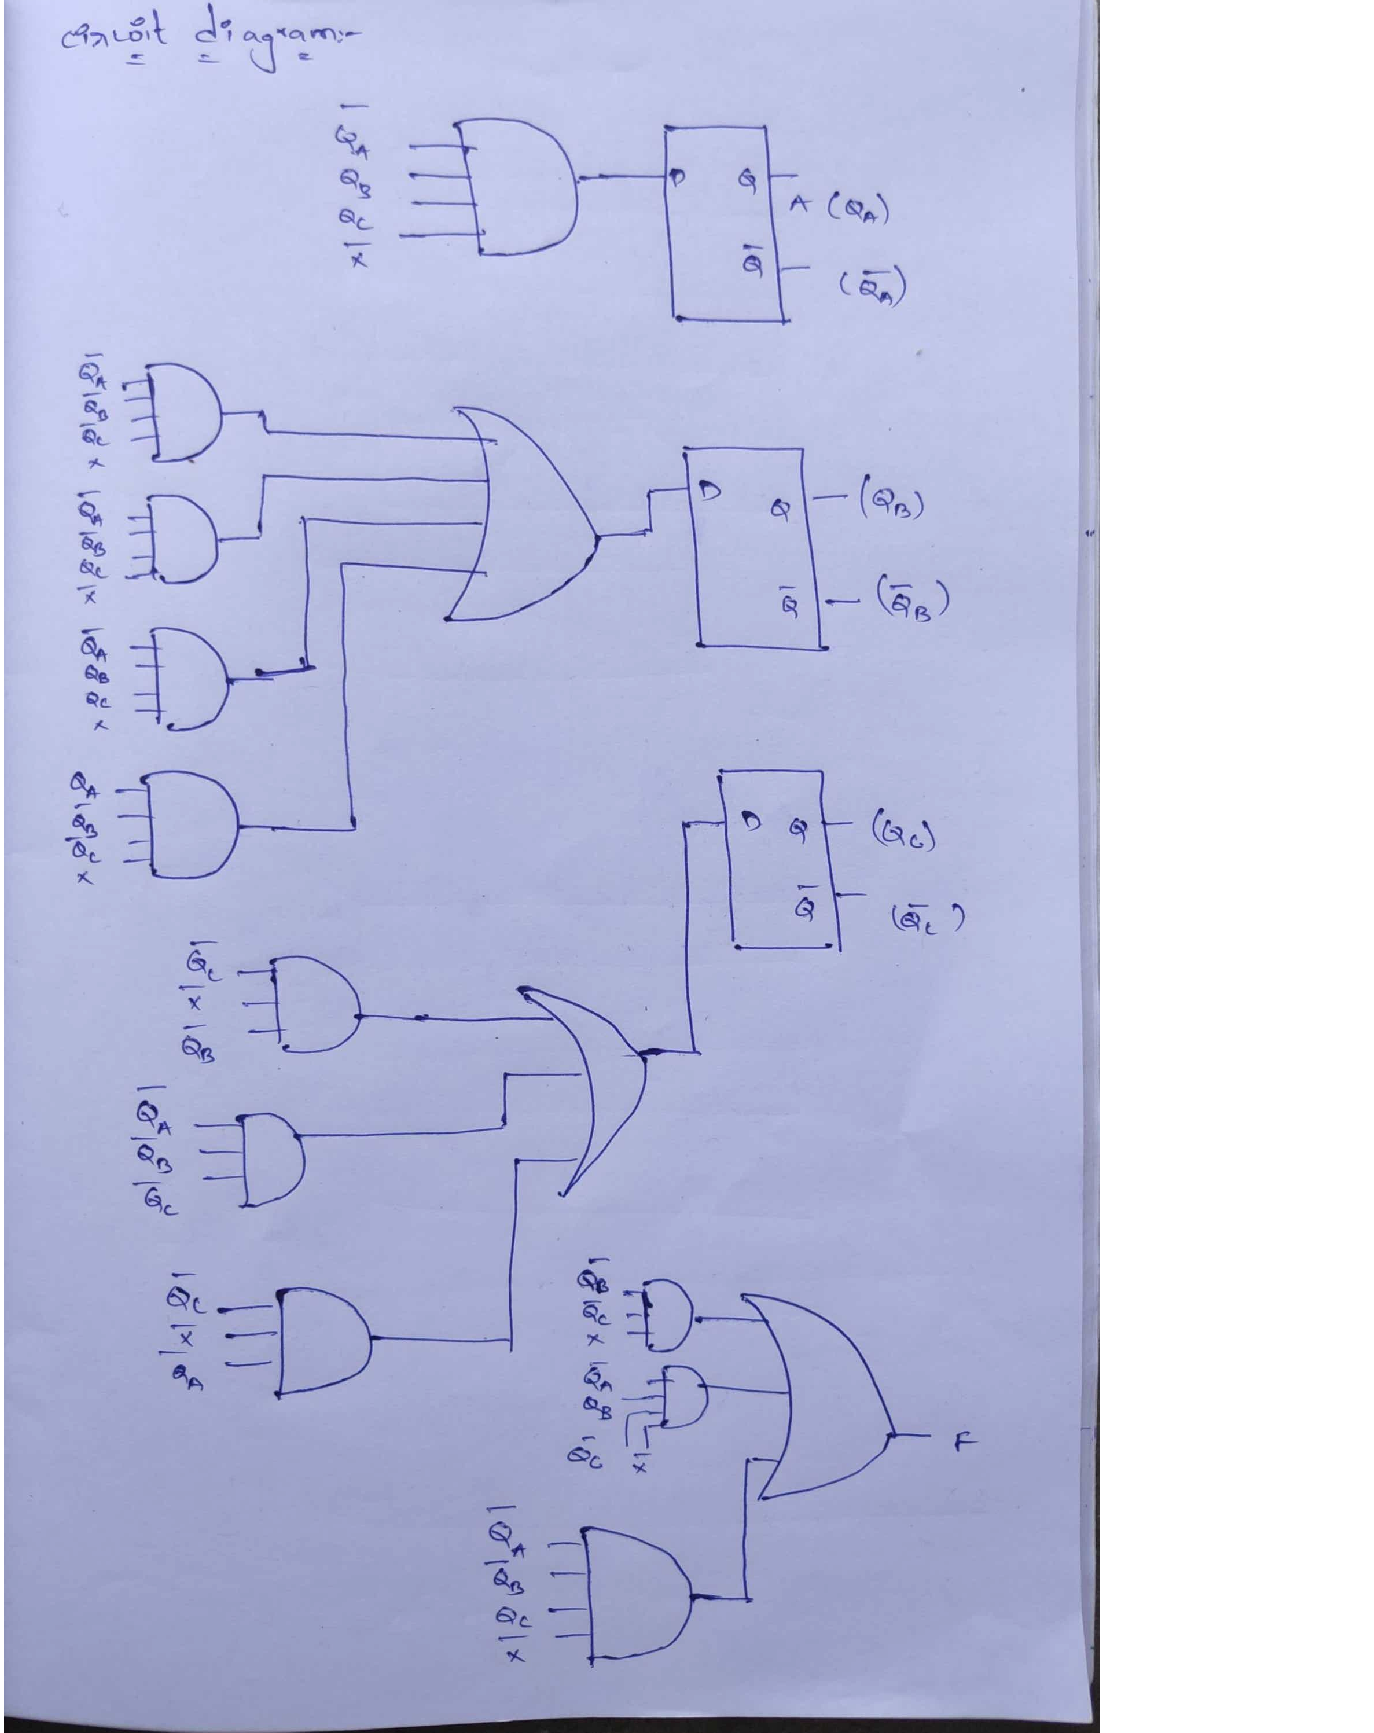 circuit diagram:-
Q̅A QB QC x̅
D Q
A (QA)
Q̅ (Q̅A)
Q̅A Q̅B Q̅C x
Q̅A Q̅B QC x̅
Q̅A QB QC x
QA Q̅B Q̅C x
D Q (QB)
Q̅ (Q̅B)
D Q (QC)
Q̅ (Q̅C)
Q̅C x̅ Q̅B
Q̅A Q̅B Q̅C
Q̅C x̅ Q̅A
Q̅B Q̅C x
Q̅A QB Q̅C x̅
F
Q̅A Q̅B QC x̅